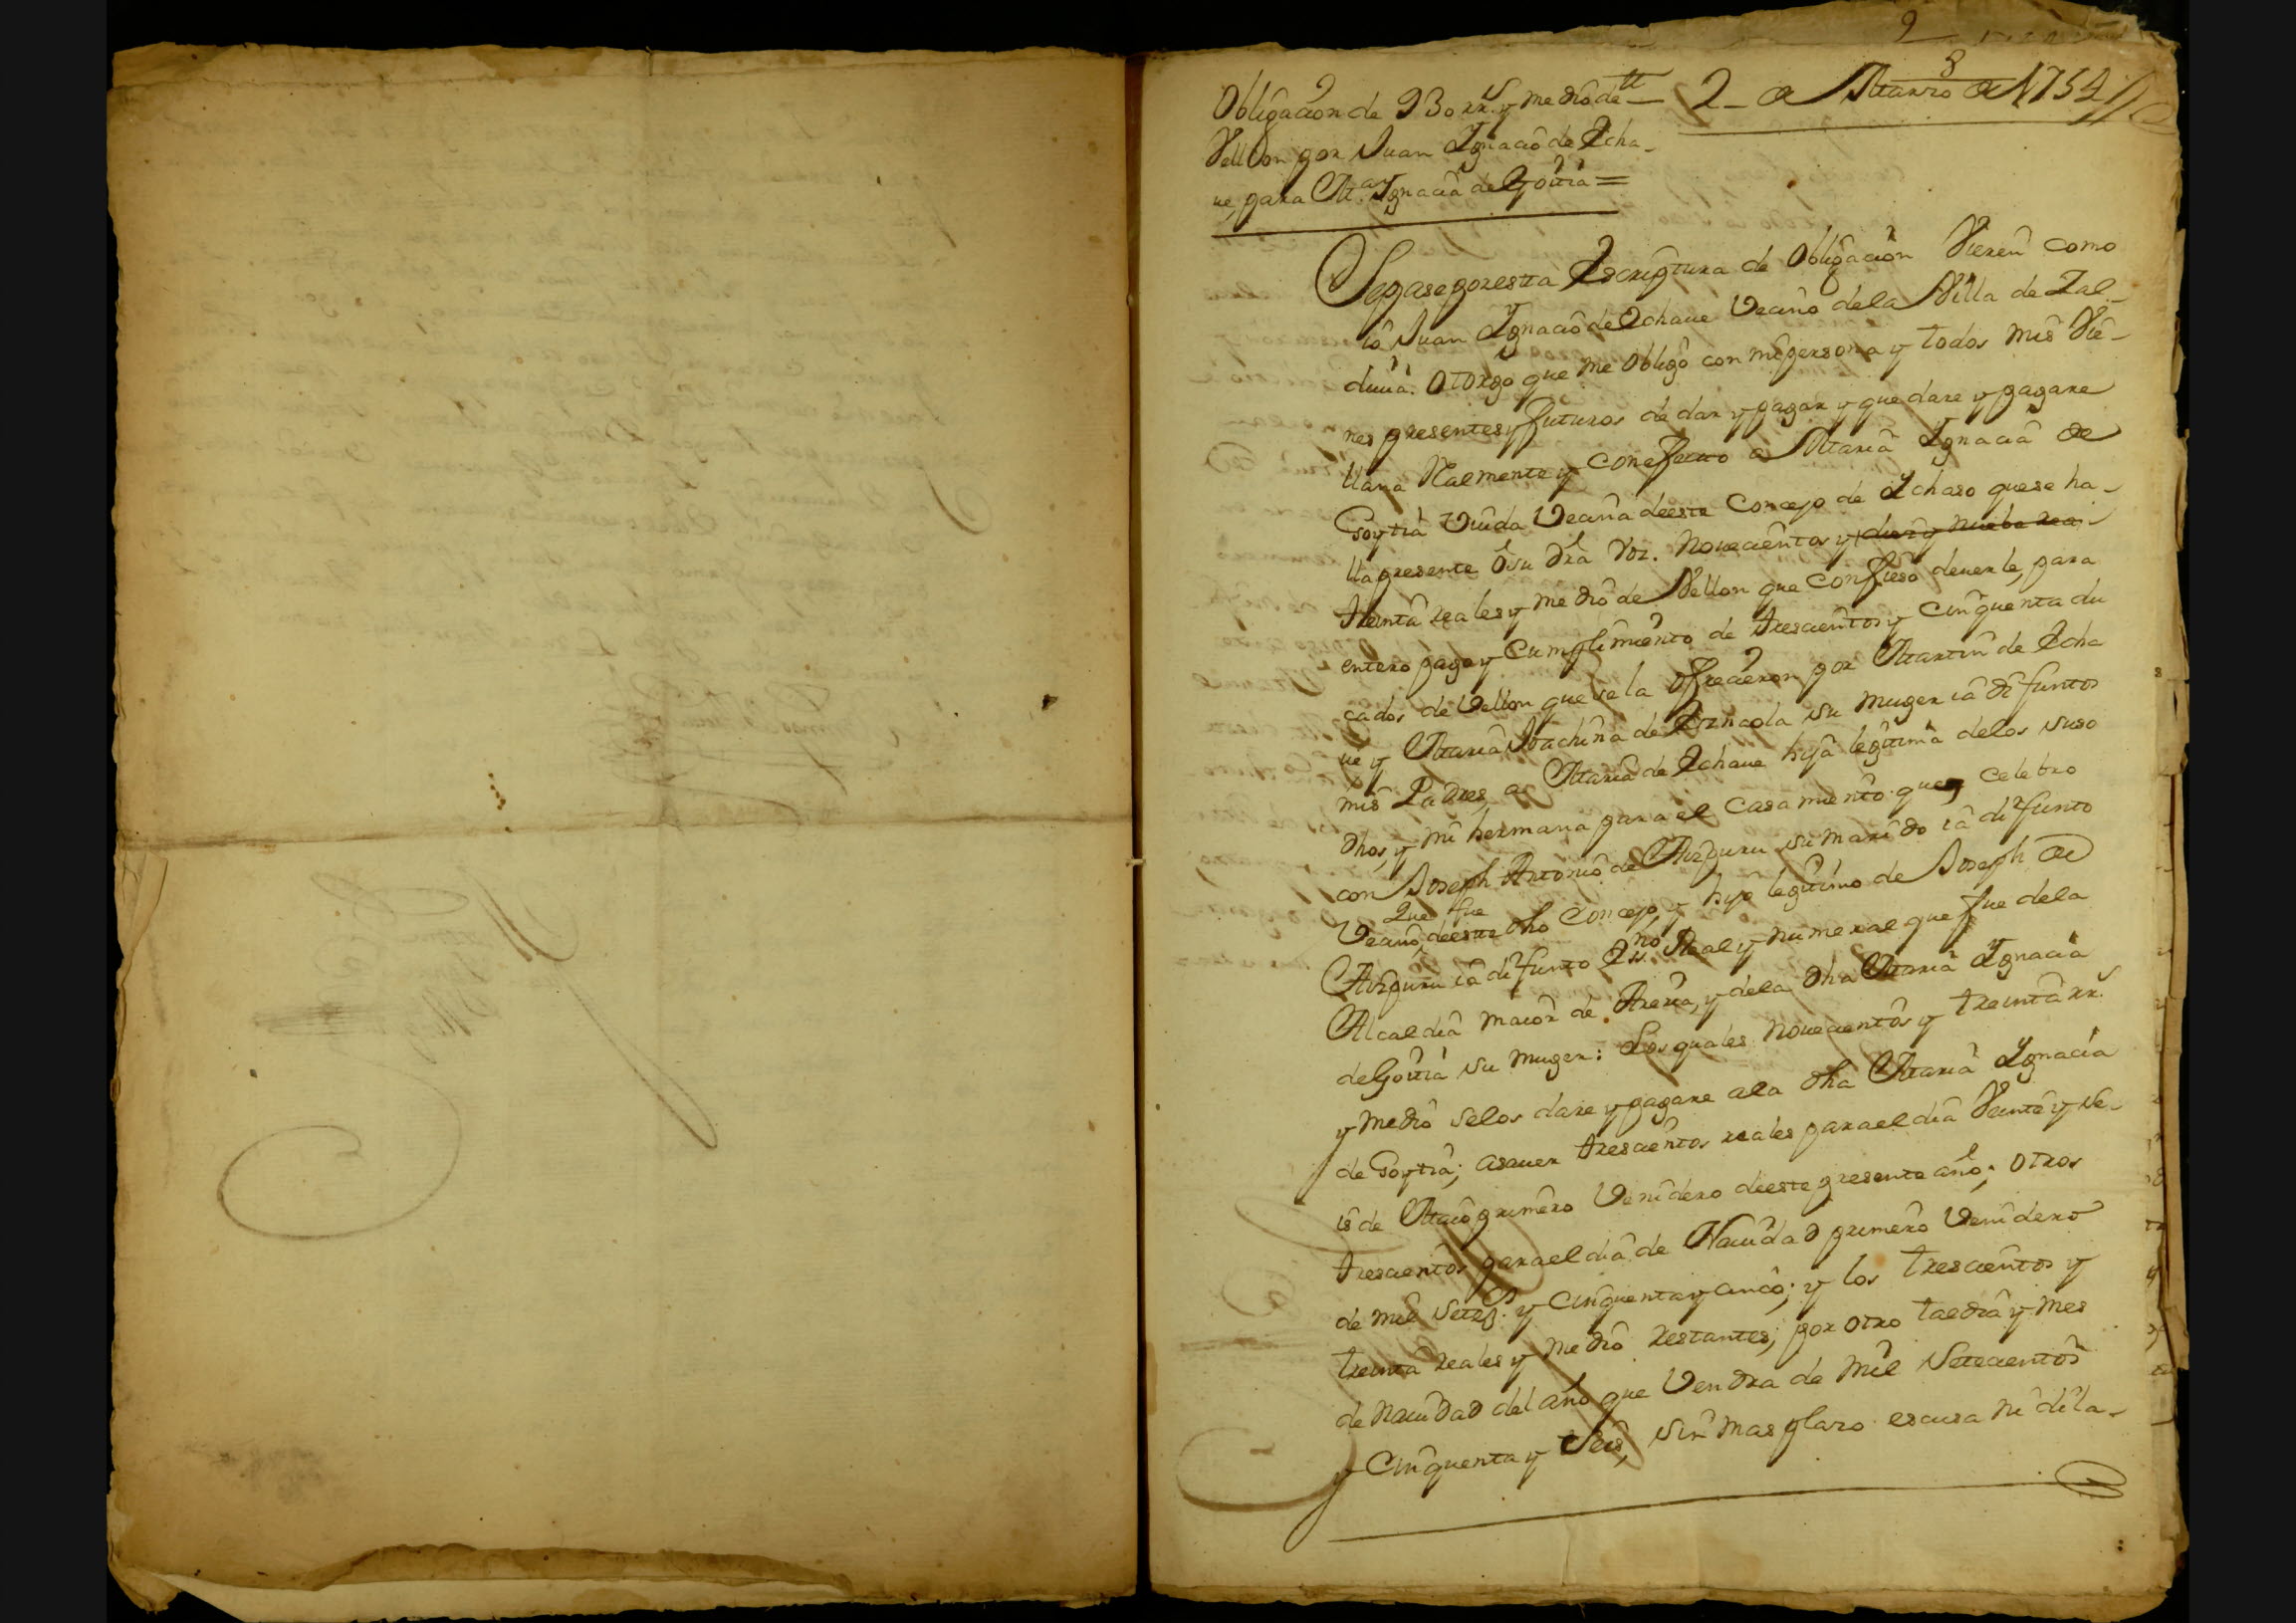 Obligacion de 930 rrs. y medio de
Vellon por Juan Ygnacio de Echa-
ue, para Ma. Ygnacia de Goitia =
2 de Marzo de 1754
8
Sepase por esta Escriptura de Obligacion Vieren como
io Juan Ygnacio de Echaue Vecino de la Villa de Zal-
diuia. Otorgo que me obligo con mi persona y todos mis Vie-
nes presentes y futuros de dar y pagar y que dare y pagare
llana Realmente y con efecto a Maria Ygnacia de
Goytia Viuda Vecina de este Concejo de Ychaso que se ha-
lla presente o su dra voz. Novecientos y diez y nuebe rea-
treinta reales y medio de Vellon que confieso deuerle, para
entero pago y cumplimiento de trescientos y cinquenta du
cados de Vellon que se la ofrecieron por Martin de Echa
ue y Maria Juachina de su muger ia difuntos
mis Padres, a Maria de Echaue hija legitima de los suso
dhos, y mi hermana para el Casamiento que celebro
con Joseph Antonio de Aizpuru su marido ia difunto
Que fue
Vecino, de este dho Concejo, y hijo legitimo de Joseph de
Aizpuru ia difunto Essno. Real y numeral que fue de la
Alcaldia maior de Areria, y de la dha Maria Ygnacia
de Goitia su muger: Los quales novecientos y treinta rrs.
y medio se los dare y pagare a la dha Maria Ygnacia
de Goytia; asauer trescientos reales para el dia Veinte y se-
is de Maio primero Venidero de este presente año; otros
trescientos para el dia de Nauidad primero Venidero
de mil setezs. y cinquenta y cinco; y los trescientos y
treinta reales y medio restantes; por otro tal dia y mes
de Nauidad del año que Vendra de mil Setecientos
y Cinquenta y Seis, sin mas plazo escusa ni dila-